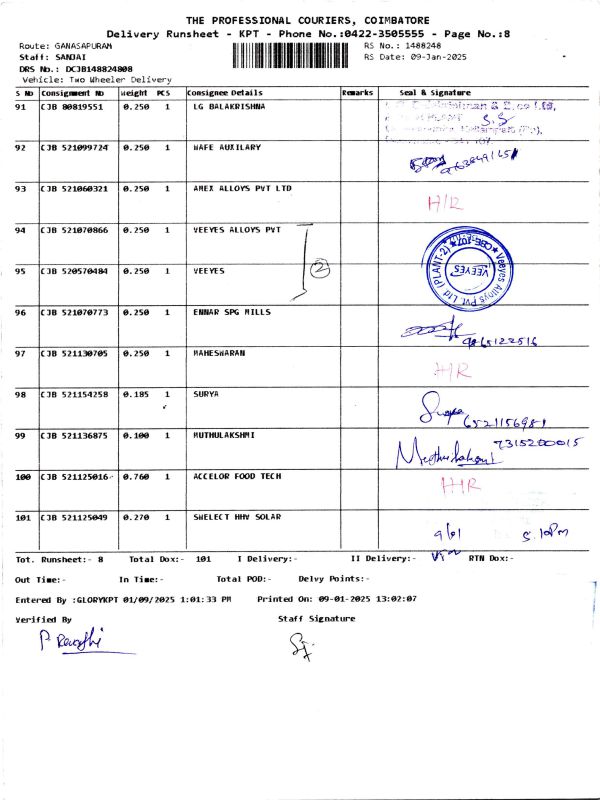 THE PROFESSIONAL COURIERS, COIMBATORE
Delivery Runsheet - KPT - Phone No.:0422-3505555 - Page No.:8
Route: GANASAPURAM RS No.: 1488248
Staff: SANJAI RS Date: 09-Jan-2025
DRS No.: DCJB148824808
Vehicle: Two Wheeler Delivery
S No Consignment No Weight PCS Consignee Details Remarks Seal & Signature
91 CJB 80819551 0.250 1 LG BALAKRISHNA
S.S
92 CJB 521099724 0.250 1 WAFE AUXILARY
93 CJB 521060321 0.250 1 AMEX ALLOYS PVT LTD H/R
94 CJB 521070866 0.250 1 VEEYES ALLOYS PVT
Veeyes Alloys Pvt. Ltd (PLANT-2)
95 CJB 520570484 0.250 1 VEEYES 2 VEEYES
96 CJB 521070773 0.250 1 ENNAR SPG MILLS
9865122516
97 CJB 521130705 0.250 1 MAHESWARAN H/R
98 CJB 521154258 0.185 1 SURYA Surya
6521156981
99 CJB 521136875 0.100 1 MUTHULAKSHMI 7315200015
Muthulakshmi
100 CJB 521125016 0.760 1 ACCELOR FOOD TECH H/R
101 CJB 521125049 0.270 1 SWELECT HHV SOLAR
9/01 5.10PM
Tot. Runsheet:- 8 Total Dox:- 101 I Delivery:- II Delivery:- RTN Dox:-
Out Time:- In Time:- Total POD:- Delvy Points:-
Entered By :GLORYKPT 01/09/2025 1:01:33 PM Printed On: 09-01-2025 13:02:07
Verified By Staff Signature
P. Revathi